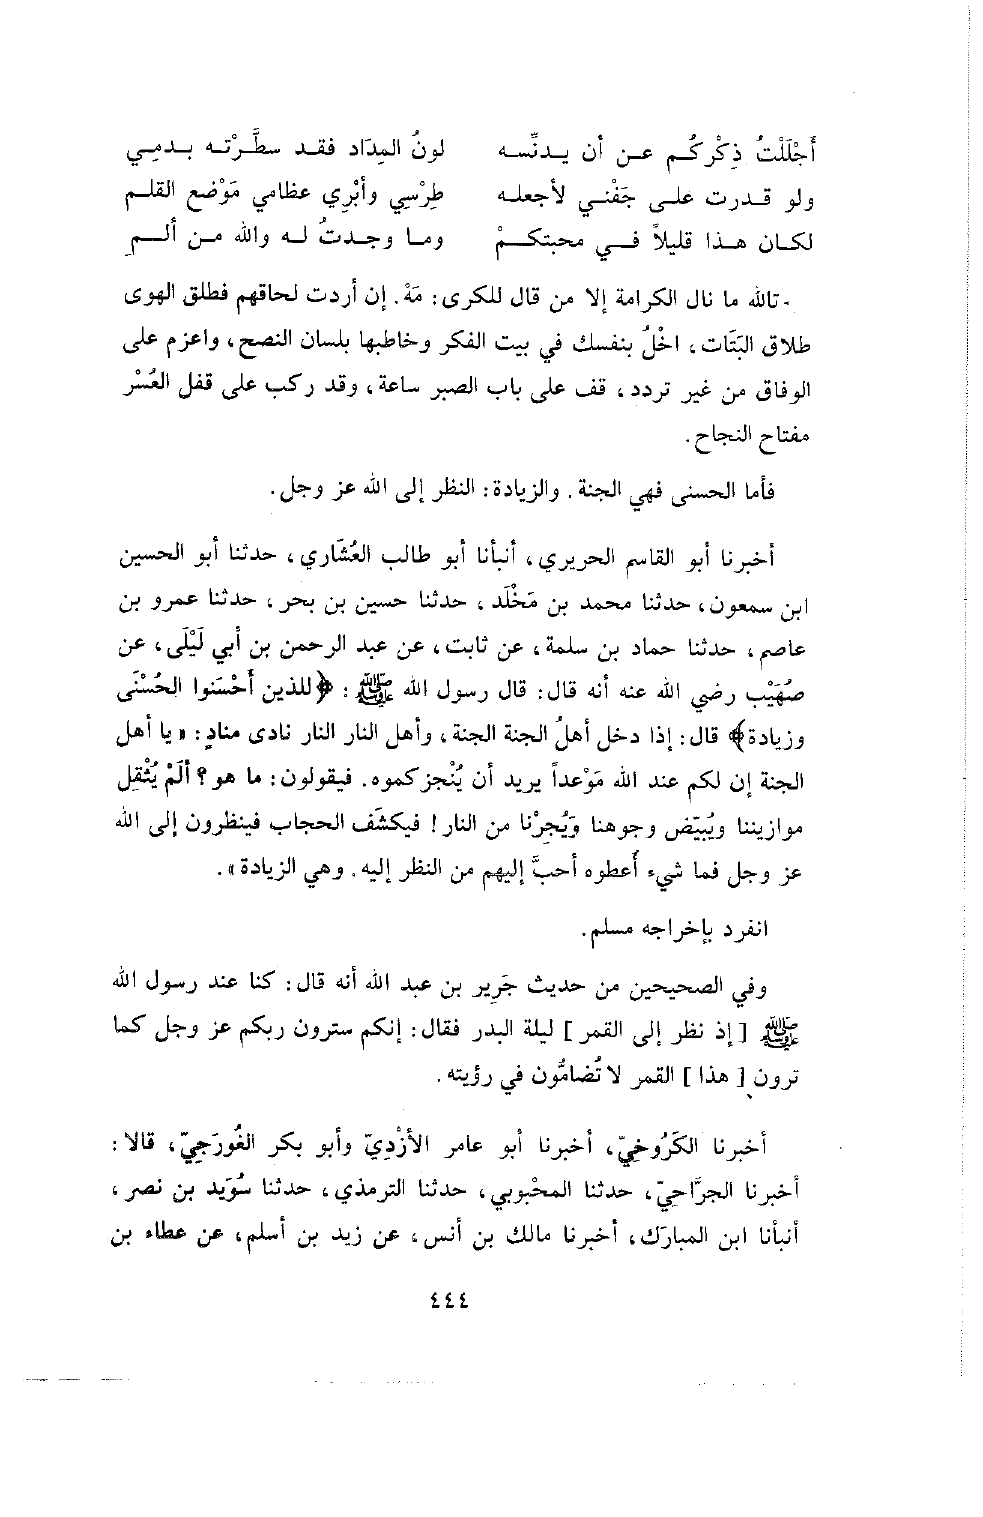 أَجْلَلْتُ ذِكْركُم عن أن يدنِّسه لونُ المِدَاد فقد سطَّرْته بدمِي
ولو قدرت على جَفْني لأجعله طِرْسِي وأبْرِي عظامي مَوْضع القلم
لكان هذا قليلاً في محبتكمْ وما وجدتُ له والله من ألمِ
تالله ما نال الكرامة إلا من قال للكرى : مَهْ . إن أردت لحاقهم فطلق الهوى
طلاق البَتَات ، اخْلُ بنفسك في بيت الفكر وخاطبها بلسان النصح ، واعزم على
الوفاق من غير تردد ، قف على باب الصبر ساعة ، وقد ركب على قفل العُسْر
مفتاح النجاح .
فأما الحسنى فهي الجنة . والزيادة : النظر إلى الله عز وجل .
أخبرنا أبو القاسم الحريري ، أنبأنا أبو طالب العُشَاري ، حدثنا أبو الحسين
ابن سمعون ، حدثنا محمد بن مَخْلَد ، حدثنا حسين بن بحر ، حدثنا عمرو بن
عاصم ، حدثنا حماد بن سلمة ، عن ثابت ، عن عبد الرحمن بن أبي لَيْلَى ، عن
صُهَيْب رضي الله عنه أنه قال : قال رسول الله ﷺ : ﴿للذين أَحْسَنوا الحُسْنَى
وزيادة﴾ قال : إذا دخل أهلُ الجنة الجنة ، وأهل النار النار نادى منادٍ : « يا أهل
الجنة إن لكم عند الله مَوْعداً يريد أن يُنْجزكموه . فيقولون : ما هو ؟ ألَمْ يُثْقِل
موازيننا ويُبَيّض وجوهنا وَيُجِرْنا من النار ! فيكشَف الحجاب فينظرون إلى الله
عز وجل فما شيء أُعطوه أحبَّ إليهم من النظر إليه . وهي الزيادة » .
انفرد بإخراجه مسلم .
وفي الصحيحين من حديث جَرِير بن عبد الله أنه قال : كنا عند رسول الله
ﷺ [ إذ نظر إلى القمر ] ليلة البدر فقال : إنكم سترون ربكم عز وجل كما
ترون [ هذا ] القمر لا تُضامُّون في رؤيته .
أخبرنا الكَرُوخيّ ، أخبرنا أبو عامر الأزْدِيّ وأبو بكر الغُورَجِيّ ، قالا :
أخبرنا الجرَّاحيّ ، حدثنا المحْبوبي ، حدثنا الترمذي ، حدثنا سُوَيد بن نصر ،
أنبأنا ابن المبارَك ، أخبرنا مالك بن أنس ، عن زيد بن أسلم ، عن عطاء بن
٤٤٤